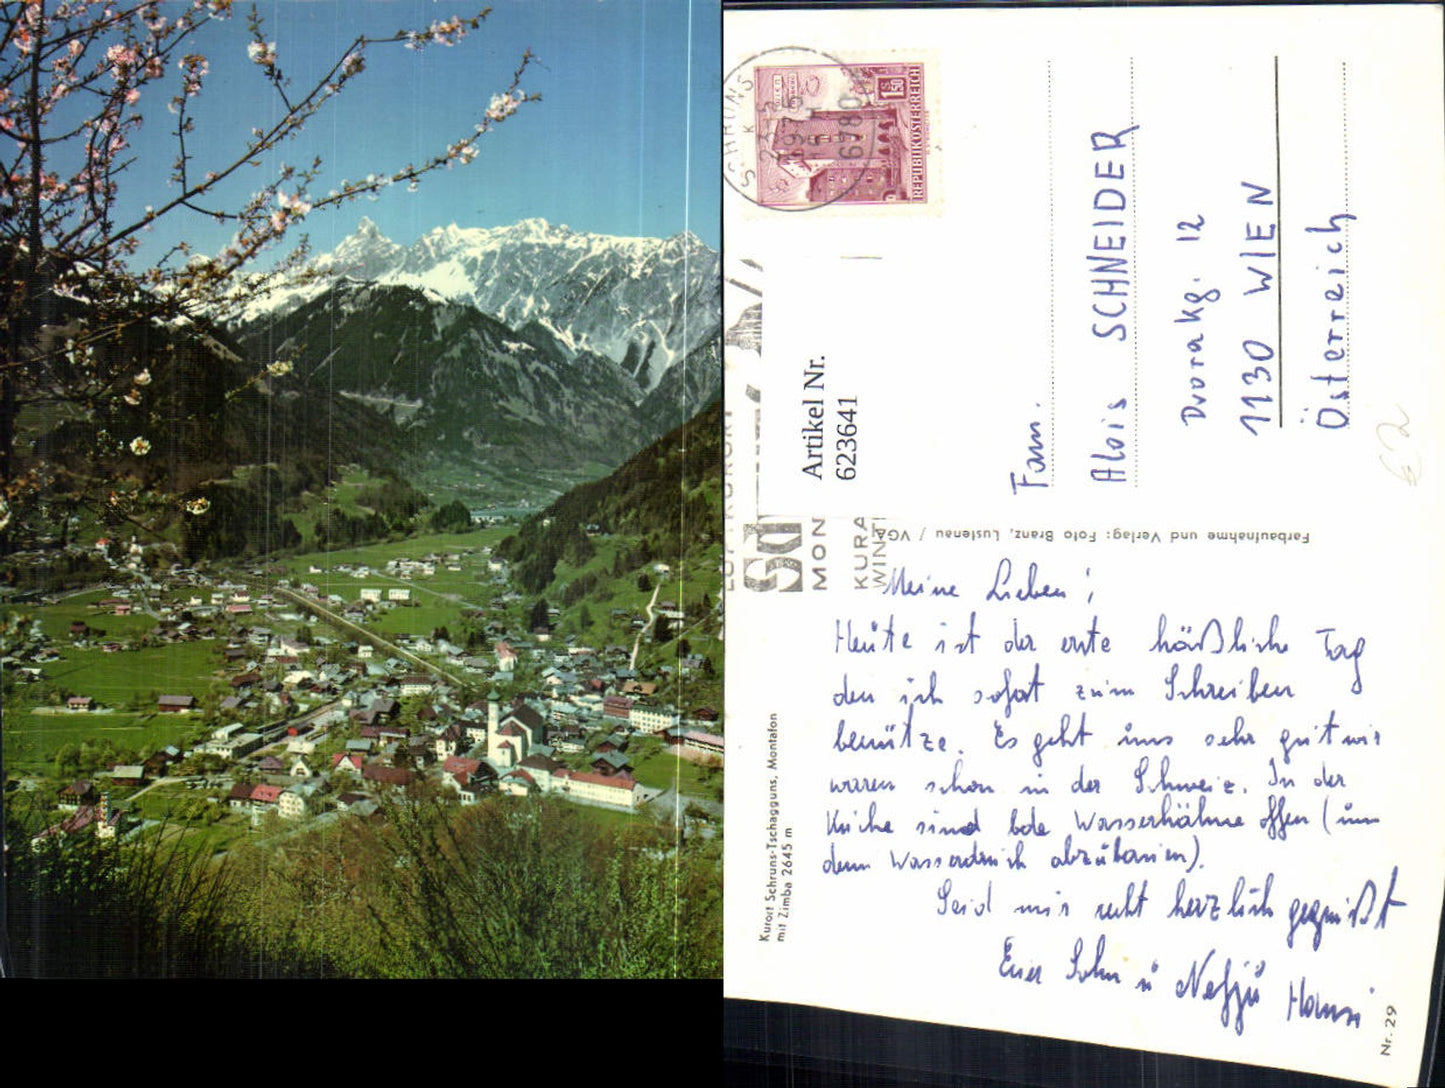 SCHRUNS
6780
1.50
REPUBLIK ÖSTERREICH
Artikel Nr.
623641
MON
KURA
WINT
Fam.
Alois SCHNEIDER
Dvorakg. 12
1130 WIEN
Österreich
€2
Farbaufnahme und Verlag: Foto Branz, Lustenau / VGA
Kurort Schruns-Tschagguns, Montafon
mit Zimba 2645 m
Meine Lieben!
Heute ist der erste häßliche Tag
den ich sofort zum Schreiben
benütze. Es geht uns sehr gut wir
waren schon in der Schweiz. In der
Küche sind Wasserhähne offen (um
den Wasserdruck abzubauen).
Seid mir recht herzlich gegrüßt
Euer Sohn u Hansi
Nr. 29